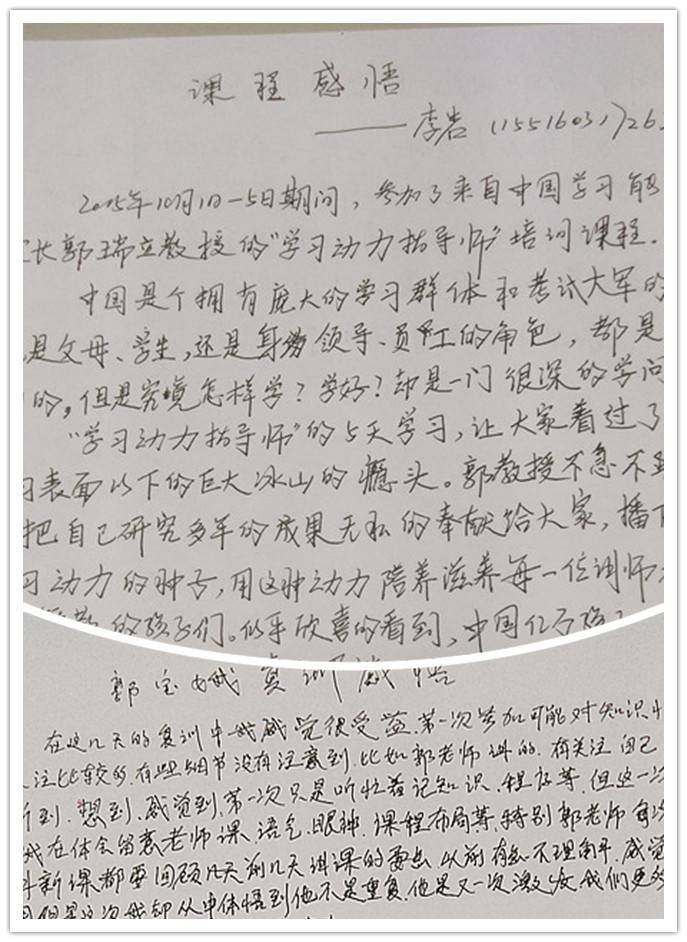 课程感悟
——李岩 (15516031726
2015年10月1日-5日期间，参加了来自中国学习能
长郭瑞立教授的"学习动力指导师"培训课程.
中国是个拥有庞大的学习群体和考试大军的
是父母、学生，还是领导、员工的角色，都是
的。但是究竟怎样学？学好？却是一门很深的学问
"学习动力指导师"的5天学习，让大家看过了
表面以下的巨大冰山的瘾头。郭教授不急不
把自己研究多年的成果无私的奉献给大家，播下
习动力的种子，用这种动力陪养滋养每一位训师
的孩子们。似乎欣喜的看到，中国亿万孩
郭宝娥复训感悟
在这几天的复训中我感觉很受益.第一次参加可能对知识
注比较多.有些细节没有注意到.比如郭老师讲的.有关注自己
到.想到.感觉到.第一次只是听忙着记知识.程序等.但这一次
我在体会留意老师课.语气.眼神.课程布局等.特别郭老师每次
新课都要回顾几天前几天讲课的要点 以前有点不理解.感觉
但是这次我却从中体悟到他不是重复.他是又一次激发我们更多